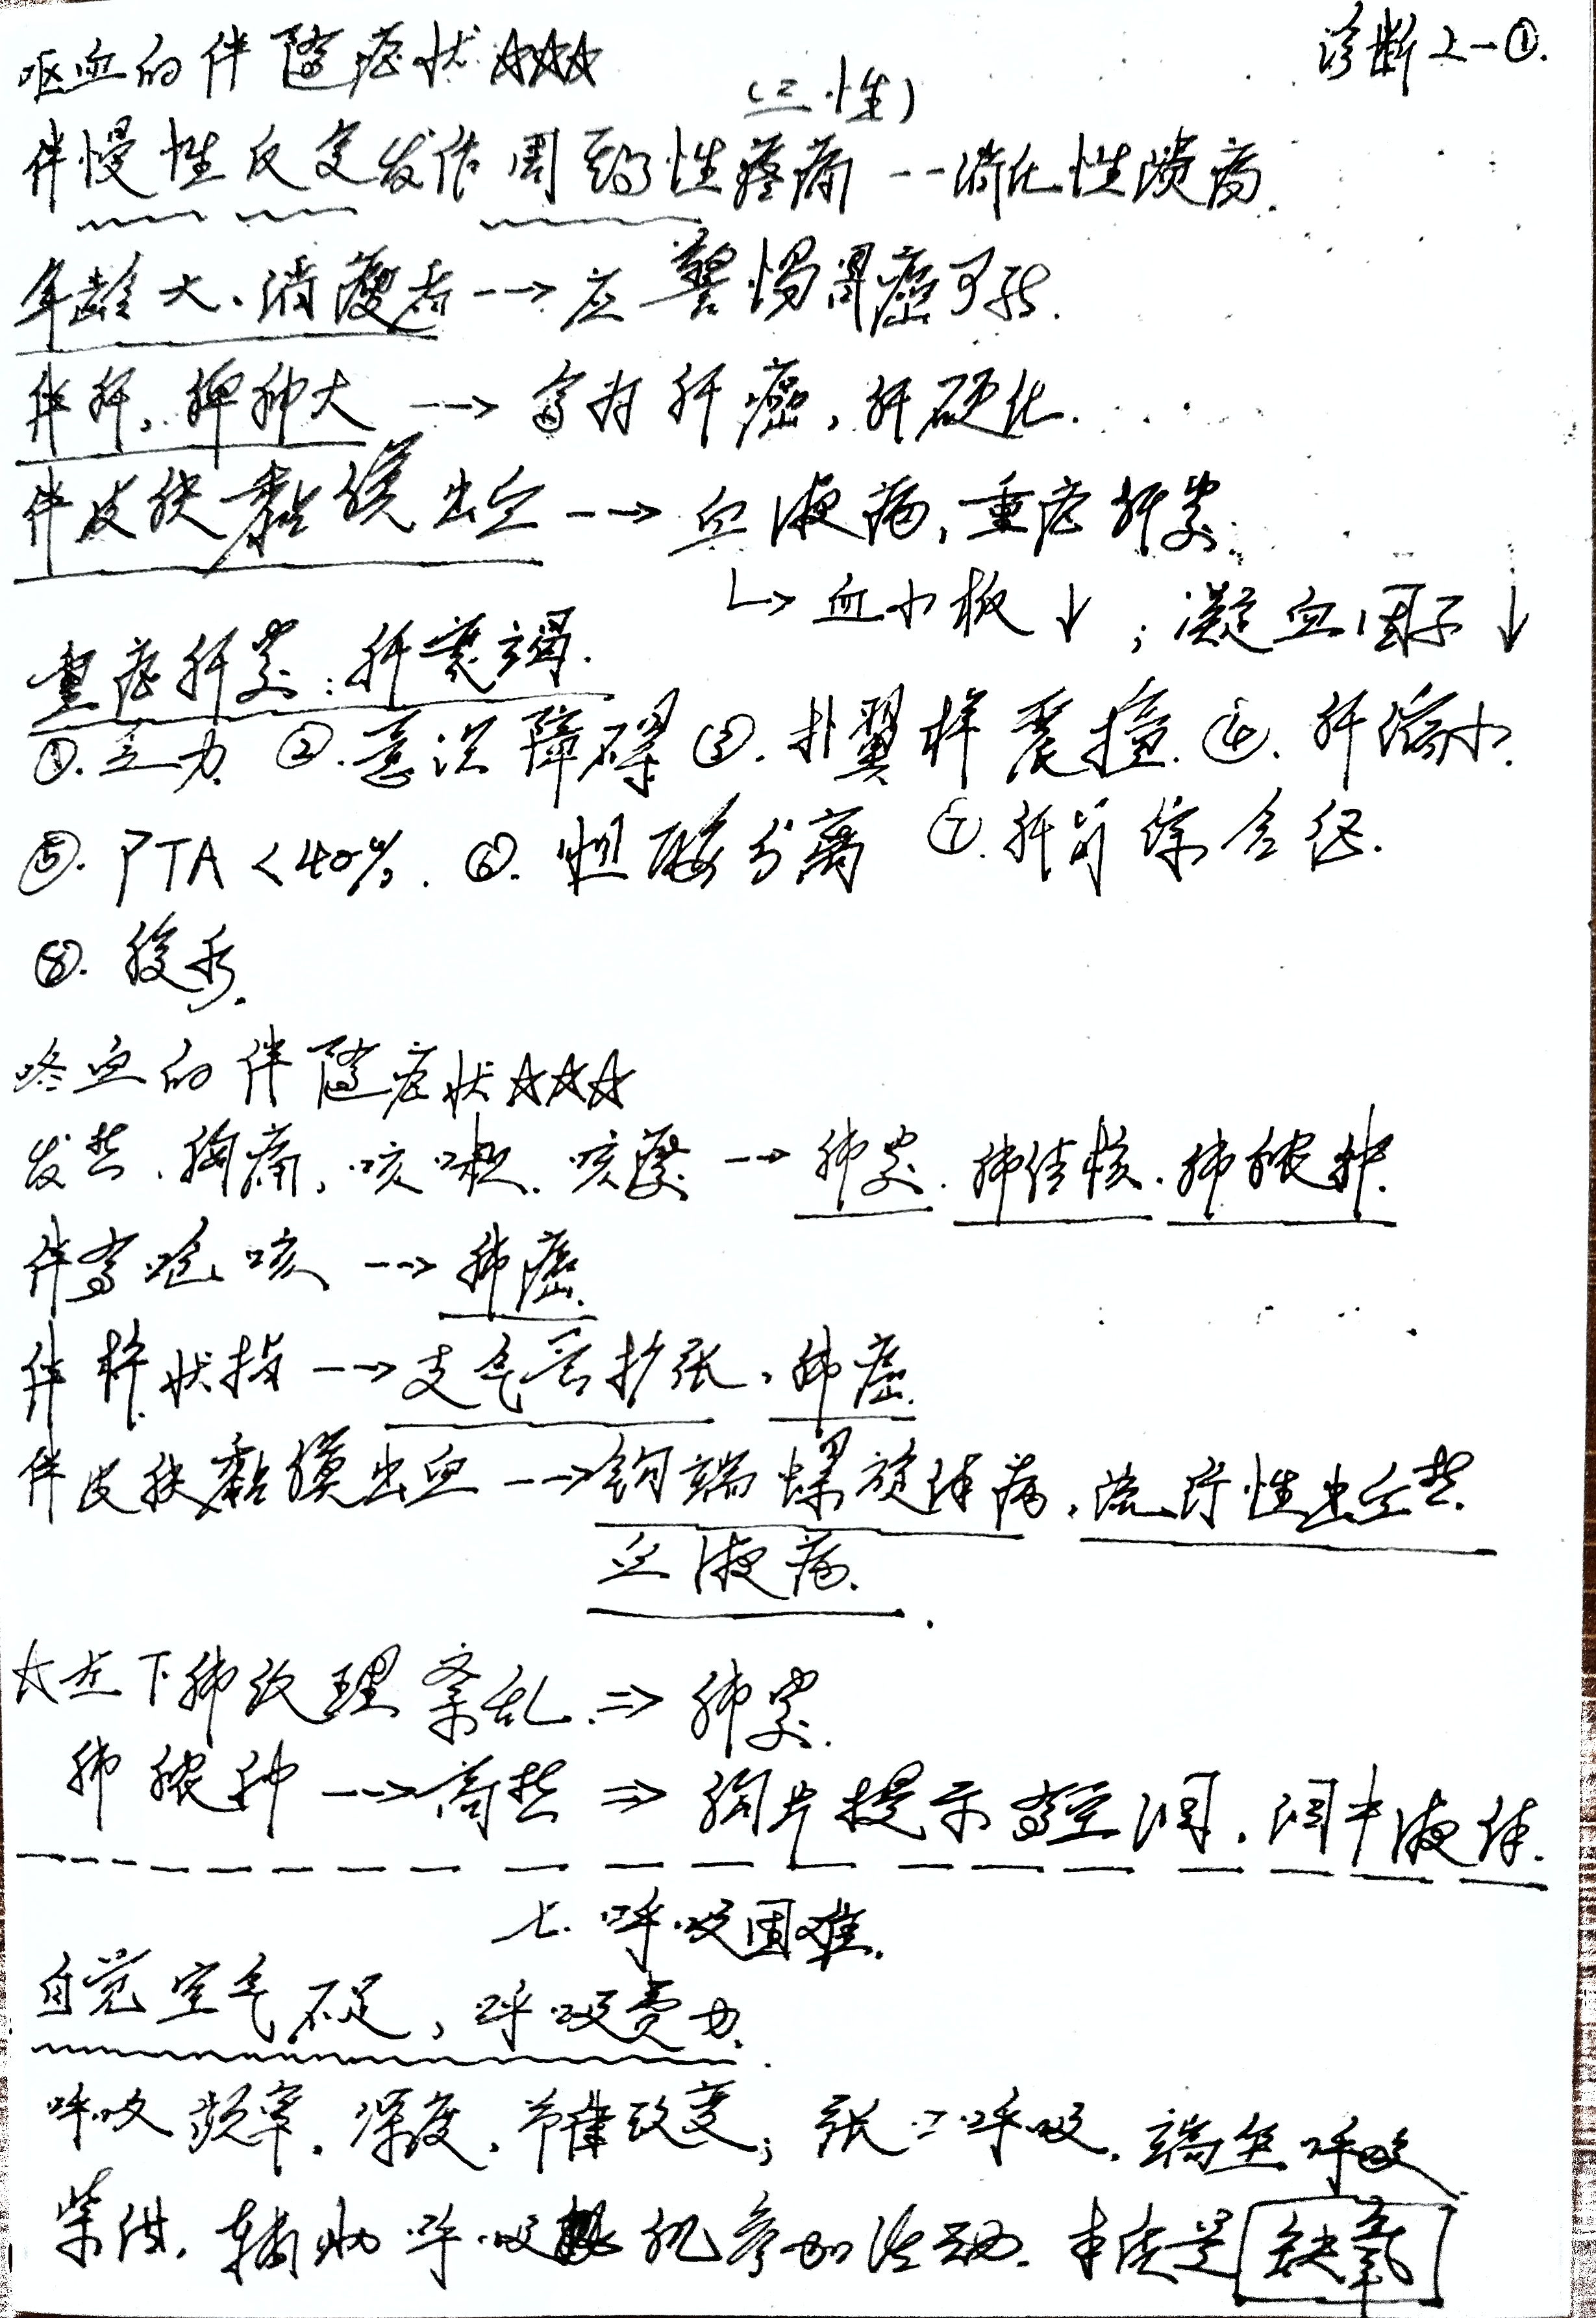 诊断上-①.
呕血的伴随症状☆☆☆
(三性)
伴慢性反复发作周期性疼痛 --消化性溃疡.
年龄大、消瘦者-->应警惕胃癌可能.
伴肝、脾肿大 --> 多为肝癌,肝硬化.
伴皮肤黏膜出血 --> 血液病,重症肝炎.
↳ 血小板↓;凝血因子↓
重症肝炎:肝衰竭.
①.乏力 ②.意识障碍 ③.扑翼样震颤. ④.肝缩小.
⑤. PTA<40%. ⑥. 胆酶分离 ⑦.肝肾综合征.
⑧. 腹水.
咯血的伴随症状☆☆☆
发热、胸痛、咳嗽、咳痰 --> 肺炎.肺结核.肺脓肿.
伴有呛咳 --> 肺癌.
伴杵状指 --> 支气管扩张、肺癌.
伴皮肤黏膜出血 --> 钩端螺旋体病、流行性出血热.
血液病.
☆左下肺纹理紊乱.⇒ 肺炎.
肺脓肿 --> 高热 ⇒ 胸片提示有空洞.洞中液体.
七.呼吸困难.
自觉空气不足,呼吸费力.
呼吸频率.深度.节律改变;张口呼吸.端坐呼吸
紫绀.辅助呼吸肌参加活动.本质是缺氧